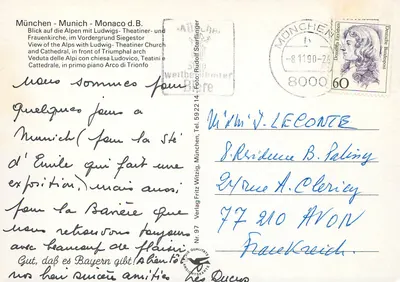 München - Munich - Monaco d.B.
Blick auf die Alpen mit Ludwigs- Theatiner- und
Frauenkirche, im Vordergrund Siegestor
View of the Alps with Ludwig- Theatiner Church
and Cathedral, in front of Triumphal arch
Veduta delle Alpi con chiesa Ludovico, Teatini e
Cattedrale, in primo piano Arco di Trionfo
Nous sommes pour
quelques jours à
Munich (pour la Sté
d'Emile qui fait une
exposition,) mais aussi,
pour la Bavière que
nous retrouvons toujours
avec beaucoup de plaisir.
Gut, daß es Bayern gibt! A bientôt
nos bien sincères amitiés Les Ducros
Nr. 97 Verlag Fritz Witzig, München, Tel. 59 22 14 · Foto: Rudolf
weltberühmter
Biere
MÜNCHEN
-8 11 90-24
8000
60
DEUTSCHE BUNDESPOST
M/Mme J. LECONTE
8. Résidence B. Palissy
24 rue A. Clericy
77 210 AVON
Frankreich.